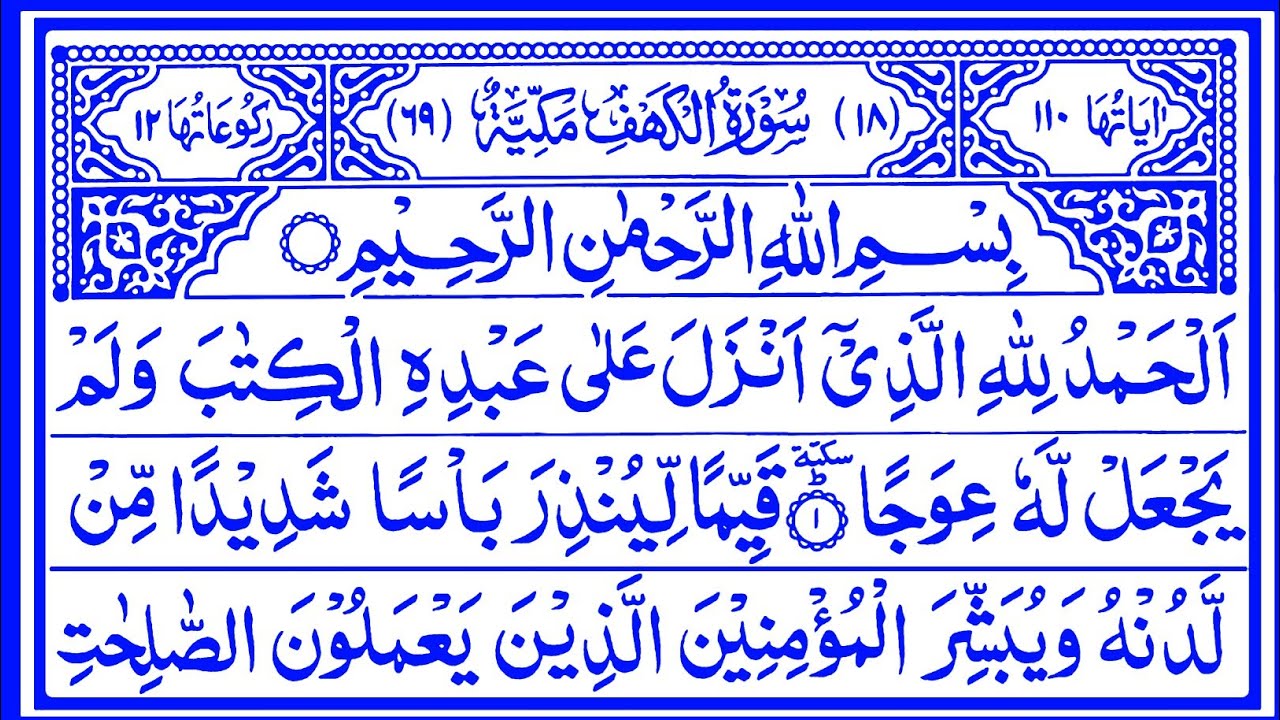 اٰیَاتُهَا ١١٠ (١٨) سُوْرَةُ الْكَهْفِ مَكِّیَّةٌ (٦٩) رُكُوْعَاتُهَا ١٢
بِسْمِ اللّٰهِ الرَّحْمٰنِ الرَّحِیْمِ
اَلْحَمْدُ لِلّٰهِ الَّذِیْۤ اَنْزَلَ عَلٰى عَبْدِهِ الْكِتٰبَ وَلَمْ
یَجْعَلْ لَّهٗ عِوَجًا ؕ سكتة ١ قَیِّمًا لِّیُنْذِرَ بَاْسًا شَدِیْدًا مِّنْ
لَّدُنْهُ وَیُبَشِّرَ الْمُؤْمِنِیْنَ الَّذِیْنَ یَعْمَلُوْنَ الصّٰلِحٰتِ